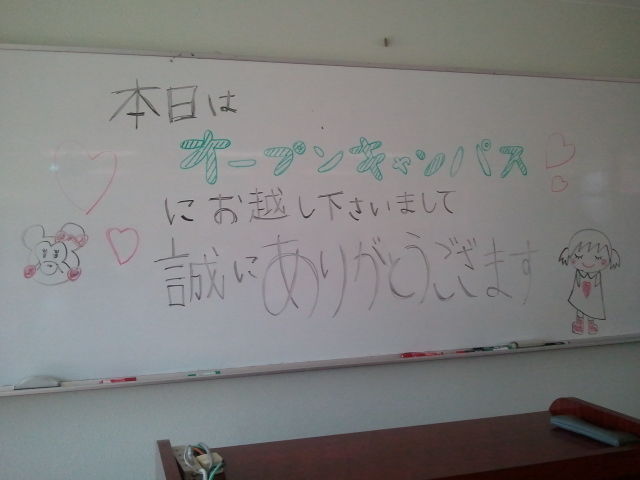 本日は
オープンキャンパス
にお越し下さいまして
誠にありがとうございます